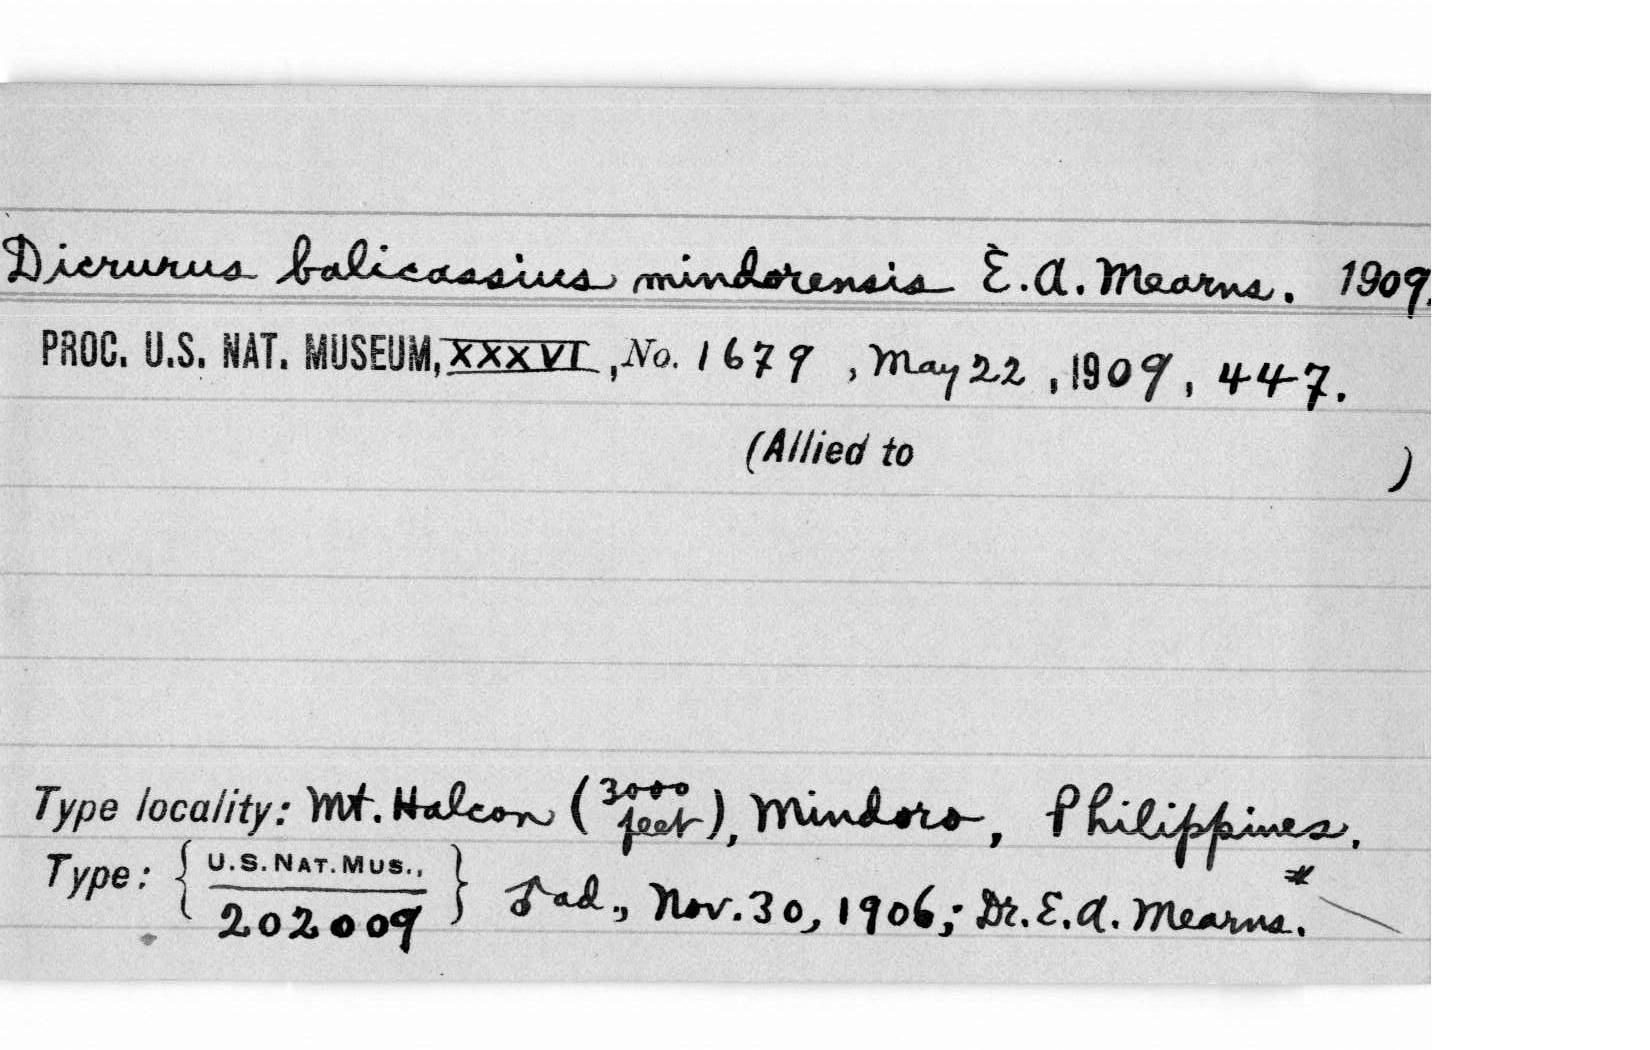 Dicrurus balicassius mindorensis E. A. Mearns. 1909.
PROC. U.S. NAT. MUSEUM, XXXVI, No. 1679, May 22, 1909, 447.
(Allied to )
Type locality: Mt. Halcon (3000 feet), Mindoro, Philippines.
Type: { U.S. NAT. MUS., 202009 } ♂ ad., Nov. 30, 1906; Dr. E. A. Mearns. *